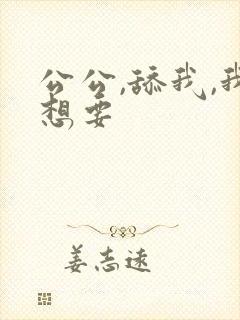 公公,舔我,我
想要
姜志远